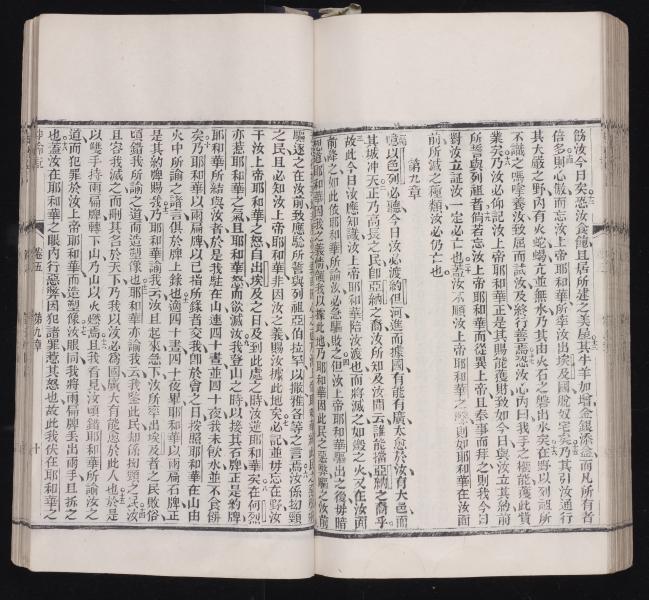 飭汝今日矣恐汝食飽且居所建之美屋與牛羊加增金銀添益而凡所有者
倍多則心傲而忘汝上帝耶和華所率汝出埃及國脫奴宅矣乃其引汝通行
其大嚴之野內有火蛇蝎亢並無水乃其由火石之磐出水矣在野以列祖所
不識之嗎嗱養汝致屈而試汝及終行善焉恐汝心內曰我手之權能獲此貲
業矣乃汝必仰記汝上帝耶和華正是其賜能獲財致如今日與汝立其約前
所誓與列祖者倘若忘汝上帝耶和華而從異上帝且奉事而拜之則我今日
對汝立証汝一定必亡也蓋汝不順汝上帝耶和華之聲則如耶和華在汝面
前所滅之種類汝必仍亡也
第九章
噫以色列必聽今日汝必渡約但河進而據國有能有廣大愈於汝有大邑而
其城冲天正乃高長之民卽亞納之裔汝所知及汝聞云誰能擋亞納之裔乎
故此今日汝應知識汝上帝耶和華陪汝渡也而將滅之如燬之火又在汝面
前降之如此依耶和華所諭汝必急驅敗之但汝上帝耶和華驅出之後毋暗
道耶和華因我之義我以據此地乃耶和華因此民之惡驅之汝前
驅逐之在汝前致應驗所誓與列祖亞伯拉罕以撒雅各等之言焉汝係拗頸
之民且必知汝上帝耶和華非因汝之義賜汝據此地矣必記並毋忘在野汝
干汝上帝耶和華之怒自出埃及之日及到此處之時汝逆耶和華矣在何烈
亦惹耶和華之氣且耶和華怒而欲滅汝我登山之時以接其石牌正是約牌
耶和華所結與汝者於是我駐在山連四十晝並四十夜我未飲水並不食餅
矣乃耶和華以兩扁牌以已指所錄者交我卽於會之日按照耶和華在山由
火中所諭之諸言俱於牌上錄也適四十晝四十夜畢耶和華以兩扁石牌正
是其約牌賜我乃耶和華諭我云汝且起來急下汝所率出埃及者之民敗俗
頃錯我所諭之道而造塑像也耶和華亦諭我云我鑒此民却係拗頸之民汝
且容我滅之而删其名於天下乃我以汝必為國廣大有能愈於此人也於是
以雙手持兩扁牌轉下山乃山以火燃焉且我看見汝頃錯耶和華所諭汝之
道而犯罪於汝上帝耶和華而造塑像汝眼同我將兩扁牌丟出兩手且拆之
也蓋汝在耶和華之眼內行惡弊因犯諸罪惹其怒也故此我伏在耶和華之
卷五
第九章
十